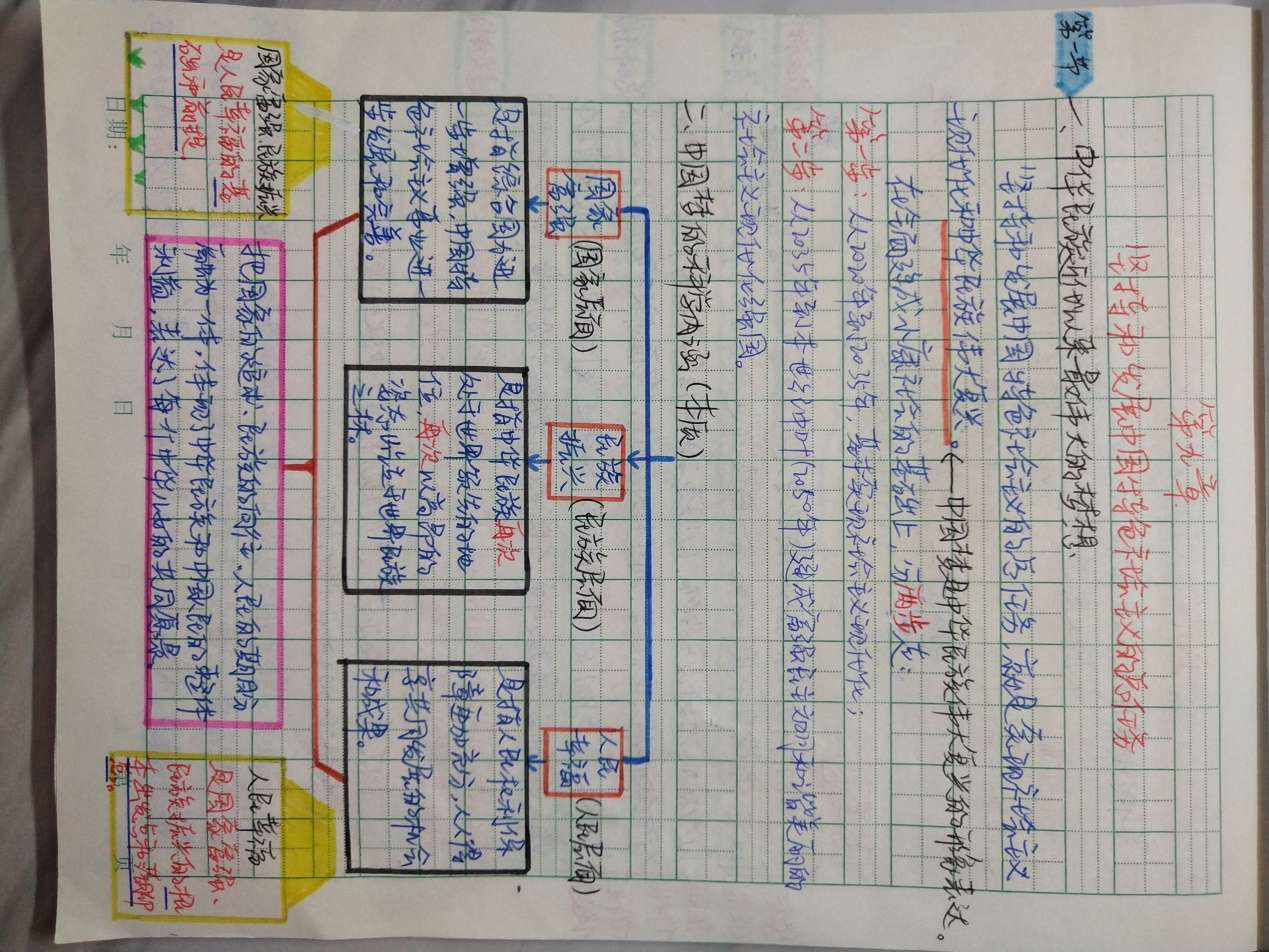 第九章
坚持和发展中国特色社会主义的总任务
第一节
一、中华民族近代以来最伟大的梦想
坚持和发展中国特色社会主义的总任务,就是实现社会主义
现代化和中华民族伟大复兴。← 中国梦是中华民族伟大复兴的形象表达。
在全面建成小康社会的基础上,分两步走:
第一步:从2020年到2035年,基本实现社会主义现代化;
第二步:从2035年到本世纪中叶(2050年)建成富强民主文明和谐美丽的
社会主义现代化强国。
二、中国梦的科学内涵(本质)
国家
富强
(国家层面)
民族
振兴
(民族层面)
人民
幸福
(人民层面)
是指综合国力进
一步增强,中国特
色社会主义事业进一
步发展和完善。
是指中华民族再次
处于世界领先的地
位,再次以高昂的
姿态屹立于世界民族
之林。
是指人民权利保
障更加充分,人人得
享共同发展的机会
和成果。
国家富强、民族振兴
是人民幸福的基
础和前提。
把国家的追求、民族的向往、人民的期盼
融为一体,体现了中华民族和中国人民的整体
利益,表达了每一个中华儿女的共同愿景。
人民幸福
是国家富强、
民族振兴的根
本出发点和落脚
点。
日期: 年 月 日
页